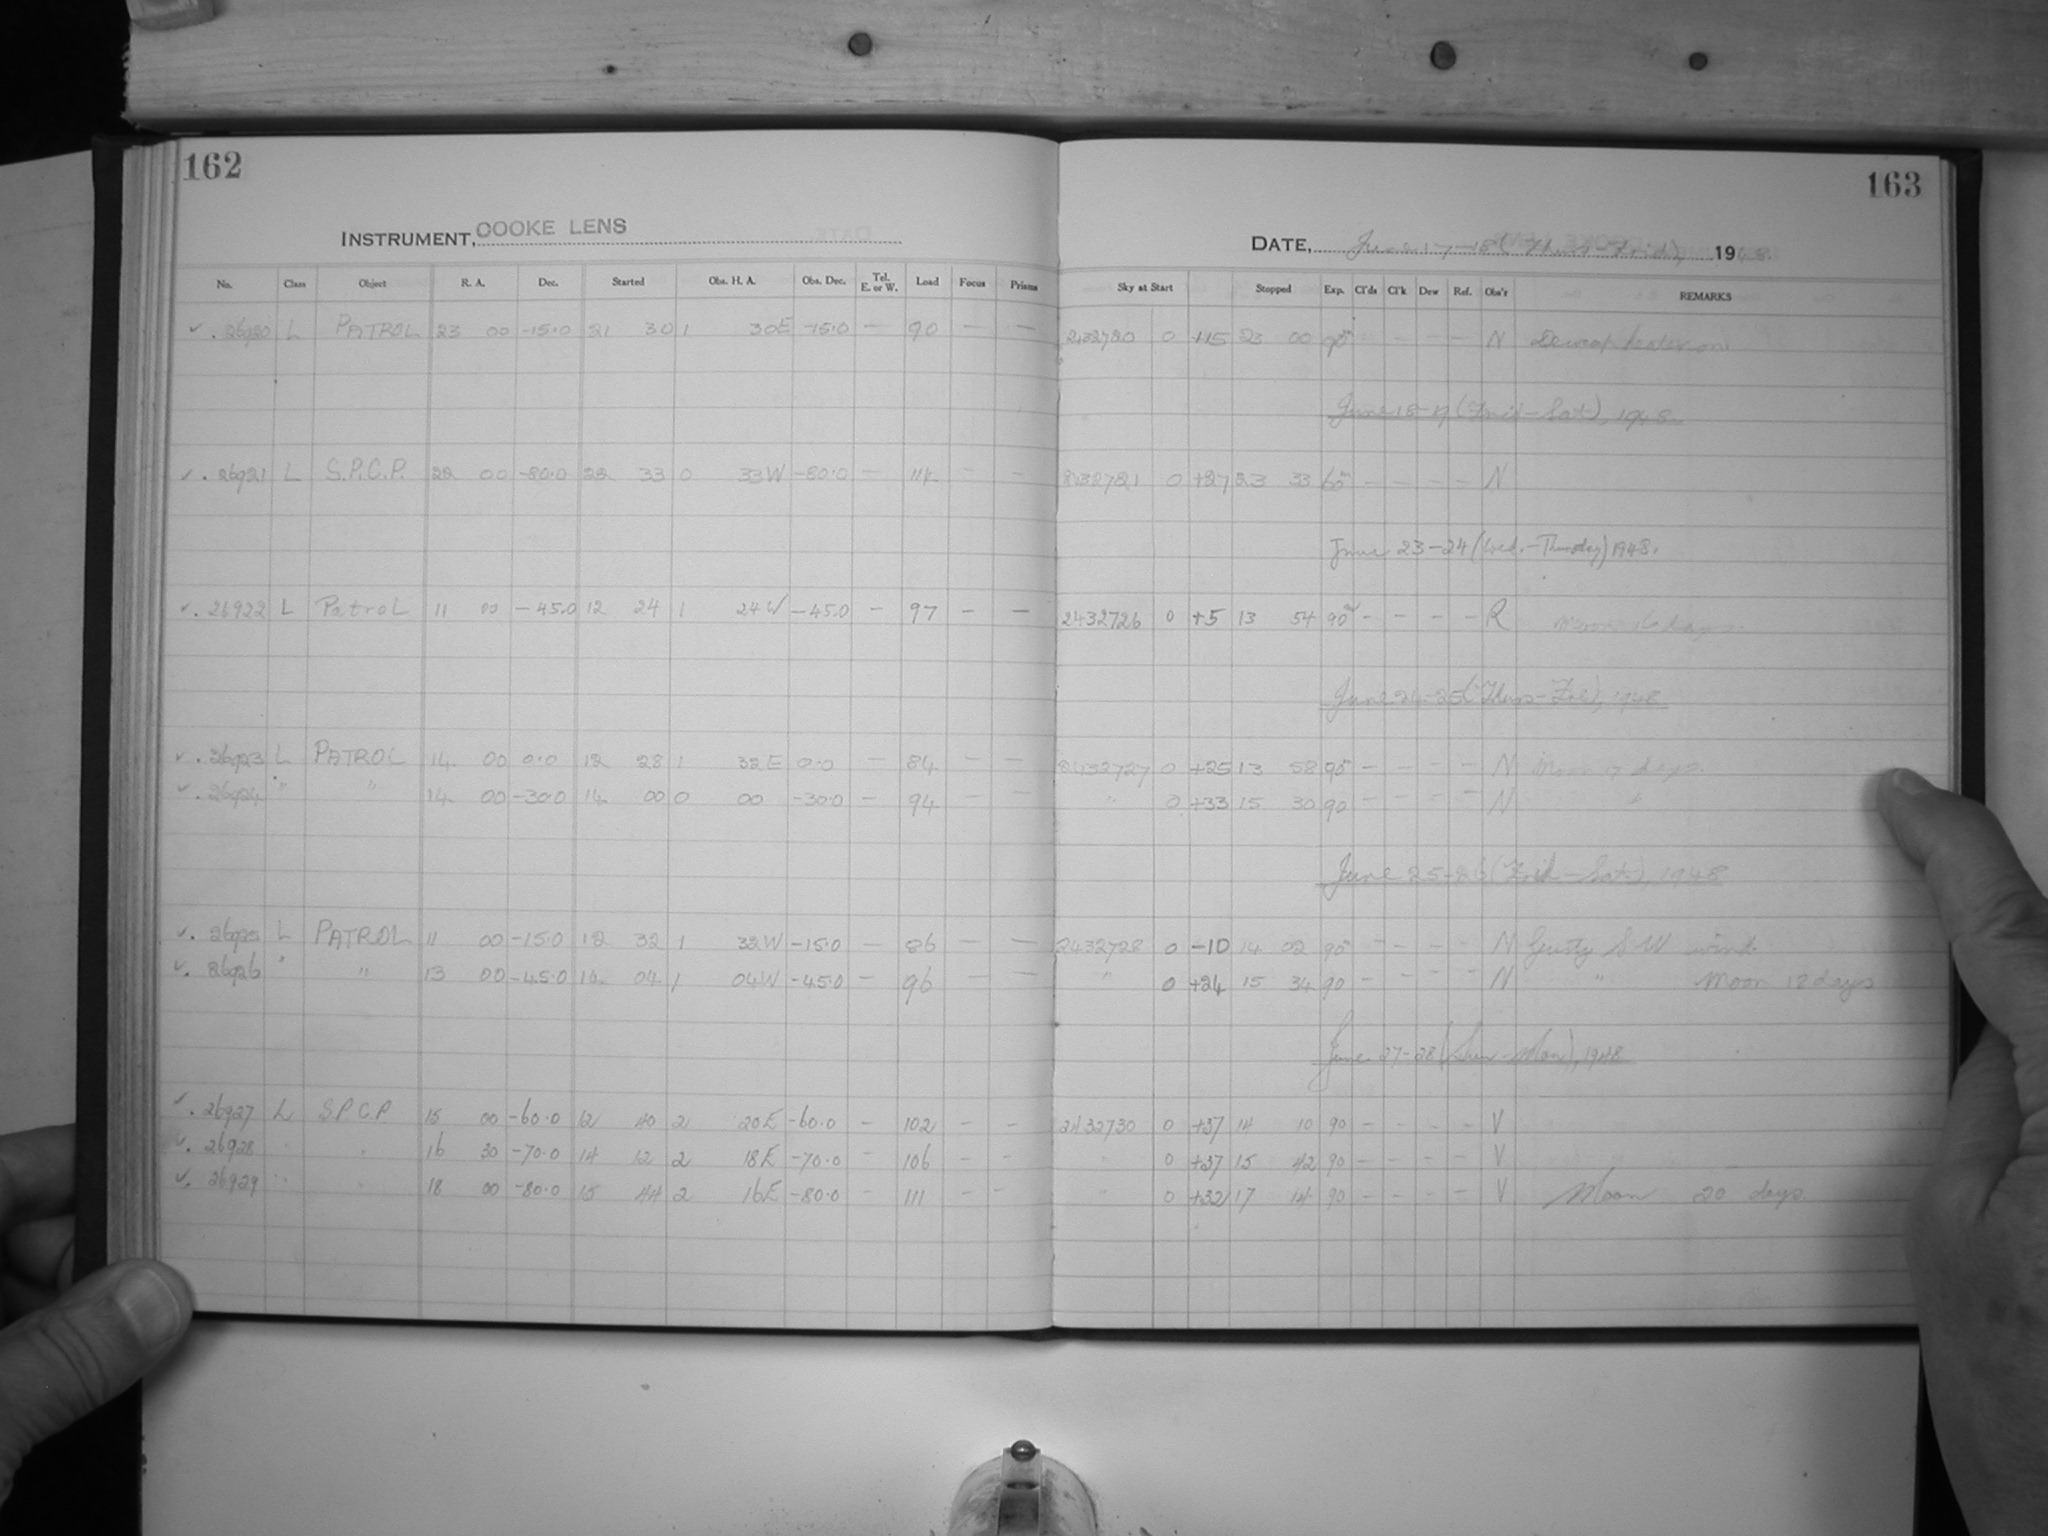 162
INSTRUMENT, COOKE LENS
No. Class Object R. A. Dec. Started Obs. H. A. Obs. Dec. Tel. E. or W. Load Focus Prisms
✓ . 26920 L PATROL 23 00 -15.0 21 30 1 30E -15.0 — 90 — —
✓ . 26921 L S.P.C.P. 22 00 -80.0 22 33 0 33W -80.0 — 111 — —
✓ . 26922 L Patrol 11 00 -45.0 12 24 1 24W -45.0 — 97 — —
✓ . 26923 L PATROL 14 00 0.0 12 28 1 32E 0.0 — 84 — —
✓ . 26924 " " 14 00 -30.0 14 00 0 00 -30.0 — 94 — —
✓ . 26925 L PATROL 11 00 -15.0 12 32 1 32W -15.0 — 86 — —
✓ . 26926 " " 13 00 -45.0 14 04 1 04W -45.0 — 96 — —
✓ . 26927 L S.P.C.P 15 00 -60.0 12 40 2 20E -60.0 — 102 — —
✓ . 26928 " " 16 30 -70.0 14 12 2 18E -70.0 — 106 — —
✓ . 26929 " " 18 00 -80.0 15 44 2 16E -80.0 — 111 — —
163
DATE, June 17-18 (Thurs-Frid), 1948
Sky at Start Stopped Exp. Cl'ds Cl'k Dew Ref. Obs'r REMARKS
2432720 0 +15 23 00 90 — — — — N Dewcap heater on
June 18-19 (Frid-Sat), 1948
2432721 0 +27 23 33 60 — — — — N
June 23-24 (Wed.-Thursday) 1948.
2432726 0 +5 13 54 90 — — — — R Moon 16 days
June 24-25 (Thurs-Fri), 1948
2432727 0 +25 13 58 90 — — — — N Moon 17 days
" 0 +33 15 30 90 — — — — N "
June 25-26 (Frid-Sat), 1948
2432728 0 -10 14 02 90 — — — — N Gusty S W wind
" 0 +24 15 34 90 — — — — N " Moon 18 days
June 27-28 (Sun-Mon), 1948
2432730 0 +37 14 10 90 — — — — V
" 0 +37 15 42 90 — — — — V
" 0 +32 17 14 90 — — — — V Moon 20 days